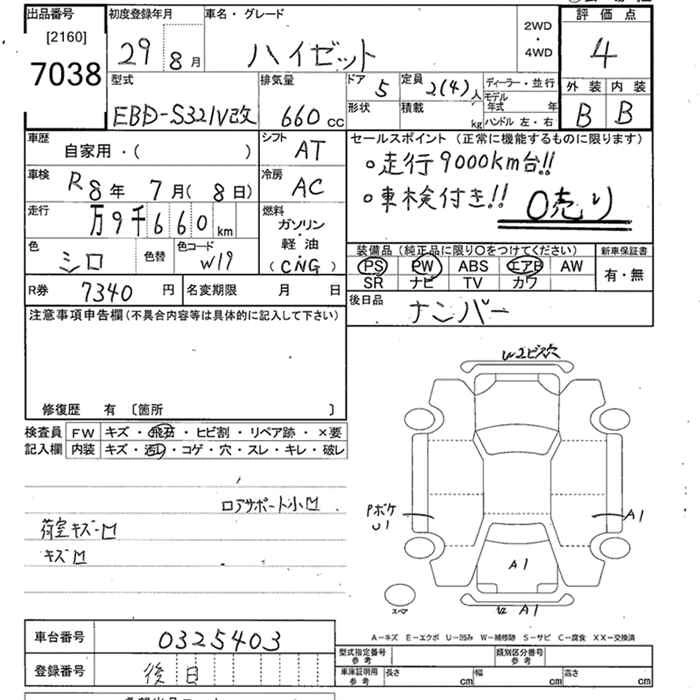 出品番号 初度登録年月 車名・グレード 評価点
[2160]
7038 29 8月 ハイゼット 2WD・4WD 4
型式 排気量 ドア 5 定員 2(4)人 ディーラー・並行 外装 内装
EBD-S321V改 660cc 形状 積載 kg モデル年式 年 ハンドル 左・右 B B
車歴 自家用・( ) シフト AT セールスポイント (正常に機能するものに限ります)
。走行9000km台!!
車検 R8年 7月(8日) 冷房 AC 。車検付き!! 0売り
走行 万9千660km 燃料 ガソリン・軽油 (CNG)
色 シロ 色替 色コード W19 装備品 (純正品に限り〇をつけてください) 新車保証書
PS PW ABS エアB AW 有・無
SR ナビ TV カワ
R券 7340円 名変期限 月 日 後日品 ナンバー
注意事項申告欄(不具合内容等は具体的に記入して下さい)
W2ビス穴
修復歴 有 [箇所 ]
検査員 FW キズ・飛石・ヒビ割・リペア跡・×要
記入欄 内装 キズ・汚れ・コゲ・穴・スレ・キレ・破レ
ロアサポート小凹
Pボケ
U1
A1
荷室キズ凹
キズ凹
A1
スペア
A1
A-キズ E-エクボ U-凹み W-補修跡 S-サビ C-腐食 XX-交換済
車台番号 0325403 型式指定番号 参考 類別区分番号 参考
登録番号 後日 車庫証明用 参考 長さ cm 幅 cm 高さ cm